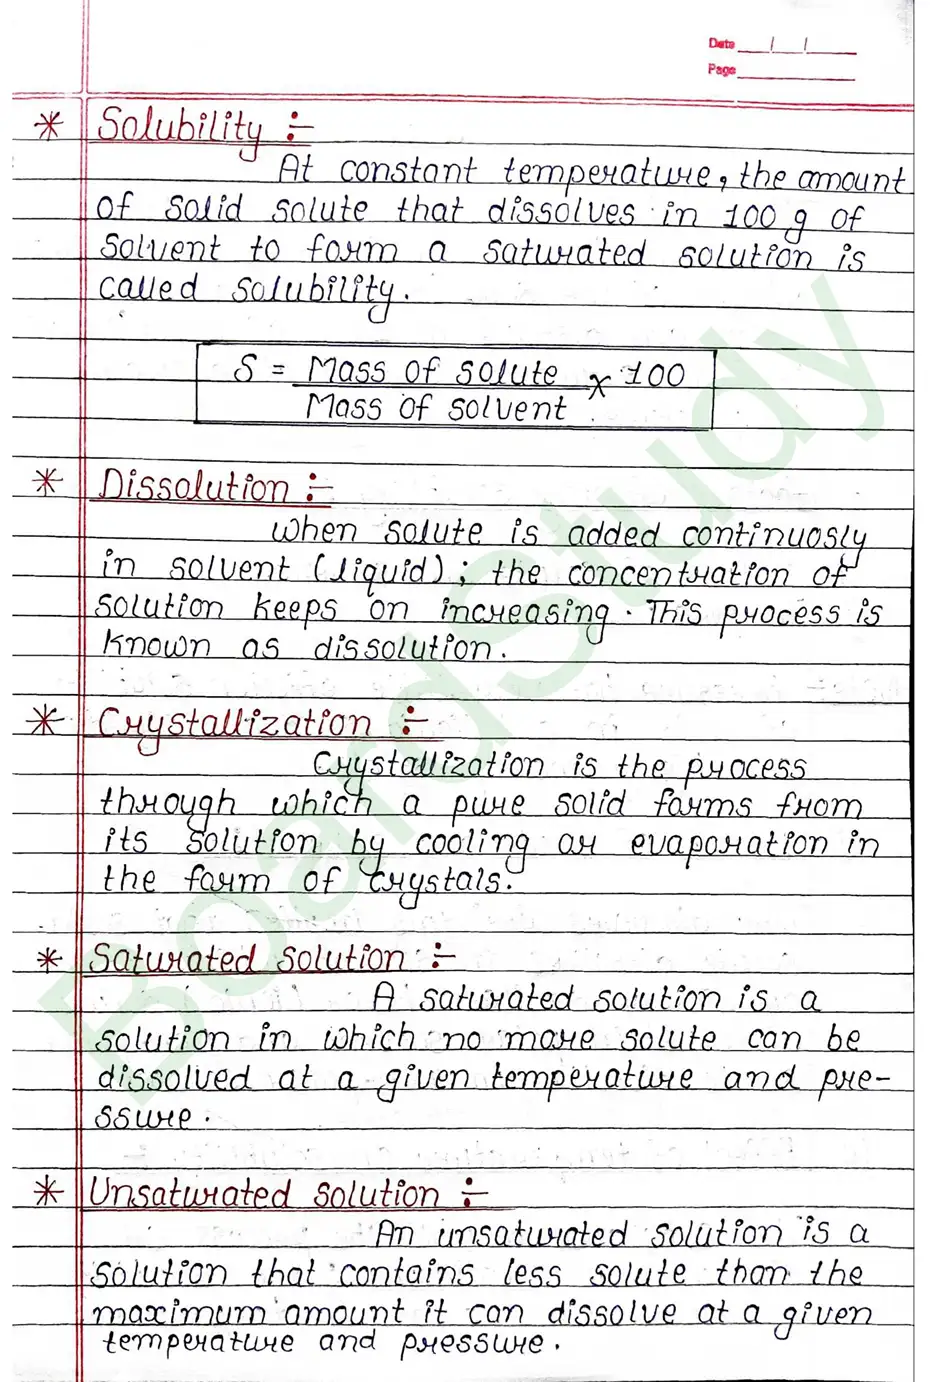 Date / /
Page
* Solubility :-
At constant temperature, the amount
of solid solute that dissolves in 100 g of
solvent to form a saturated solution is
called solubility.
S = Mass of solute × 100
Mass of solvent
* Dissolution :-
When solute is added continuosly
in solvent (liquid); the concentration of
solution keeps on increasing. This process is
known as dissolution.
* Crystallization :-
Crystallization is the process
through which a pure solid forms from
its solution by cooling or evaporation in
the form of crystals.
* Saturated solution :-
A saturated solution is a
solution in which no more solute can be
dissolved at a given temperature and pre-
ssure.
* Unsaturated solution :-
An unsaturated solution is a
solution that contains less solute than the
maximum amount it can dissolve at a given
temperature and pressure.
BoardStudy